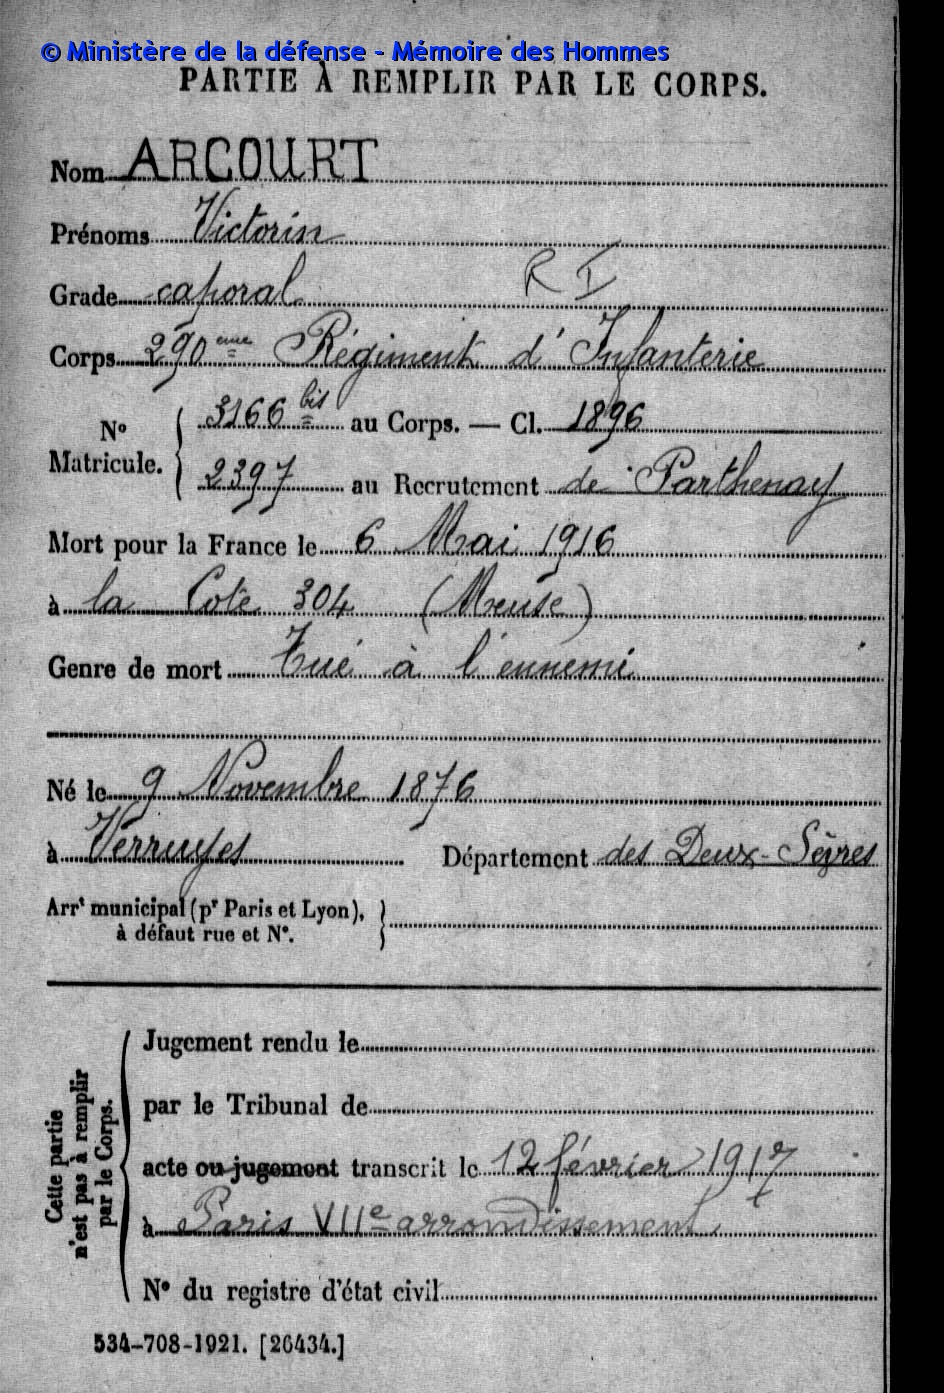 © Ministère de la défense - Mémoire des Hommes
PARTIE À REMPLIR PAR LE CORPS.
Nom ARCOURT
Prénoms Victorin
Grade caporal R I
Corps 290 eme Régiment d'Infanterie
N° Matricule. { 3166 bis au Corps. — Cl. 1896
2397 au Recrutement de Parthenay
Mort pour la France le 6 Mai 1916
à la Cote 304 (Meuse)
Genre de mort Tué à l'ennemi
Né le 9 Novembre 1876
à Verruyes Département des Deux-Sèvres
Arrt municipal (pr Paris et Lyon),
à défaut rue et N°.
Cette partie
n'est pas à remplir
par le Corps.
Jugement rendu le
par le Tribunal de
acte ou jugement transcrit le 12 février 1917
à Paris VIIe arrondissement
N° du registre d'état civil
534-708-1921. [26434.]